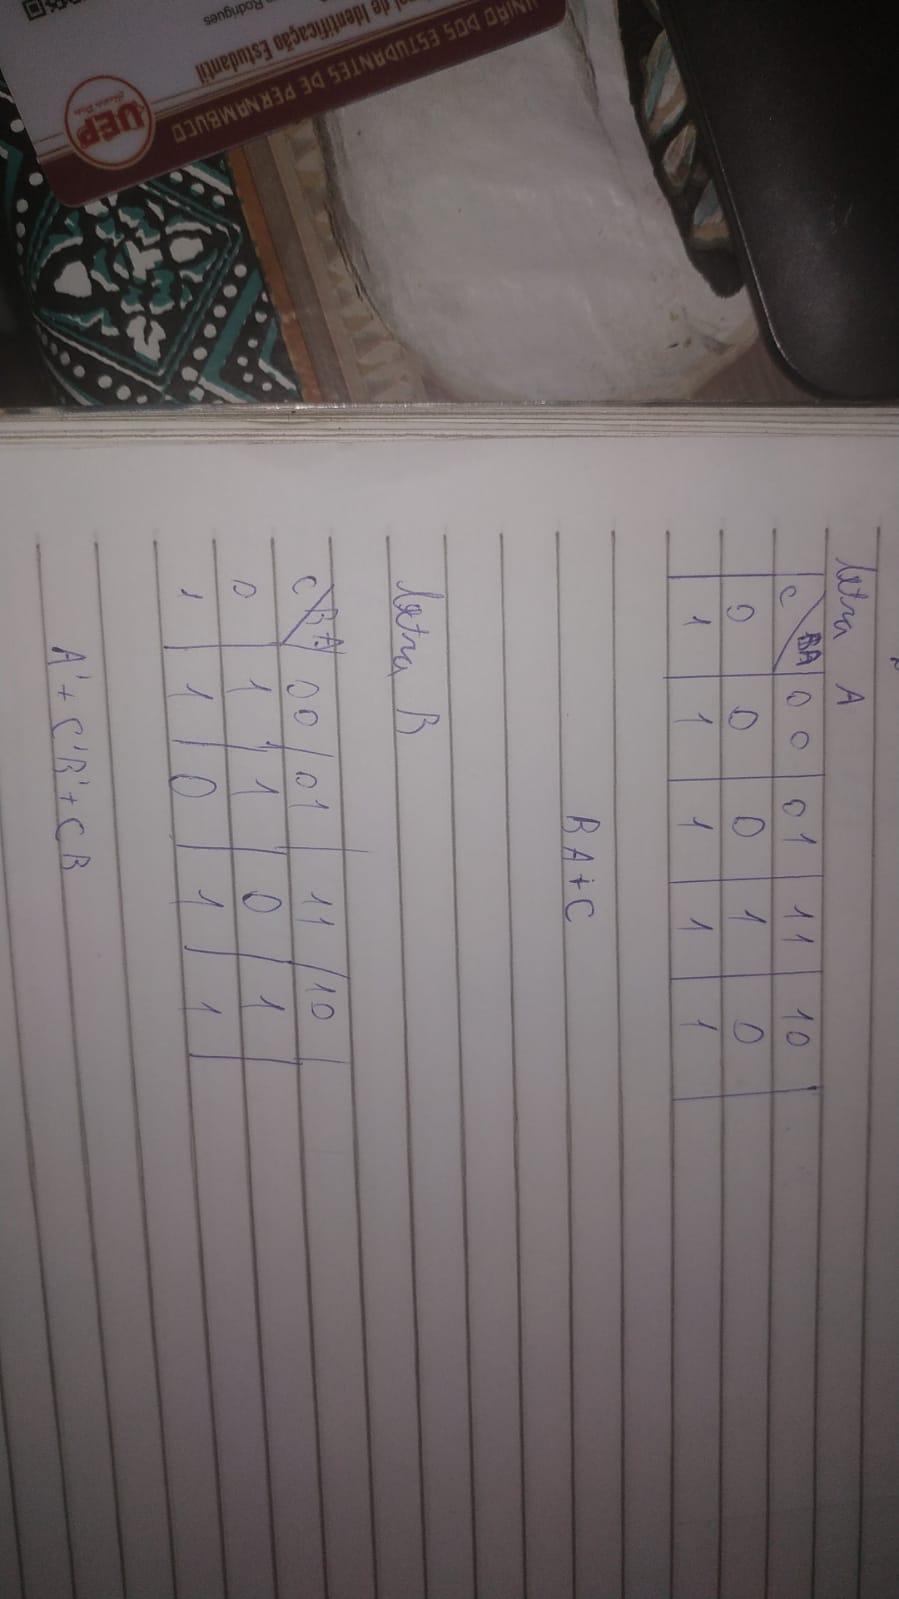 letra A
C BA 00 01 11 10
0 0 0 1 0
1 1 1 1 1
BA+C
letra B
C BA 00 01 11 10
0 1 1 0 1
1 1 0 1 1
A'+C'B'+CB
UNIÃO DOS ESTUDANTES DE PERNAMBUCO
de Identificação Estudantil
Rodrigues
UEP